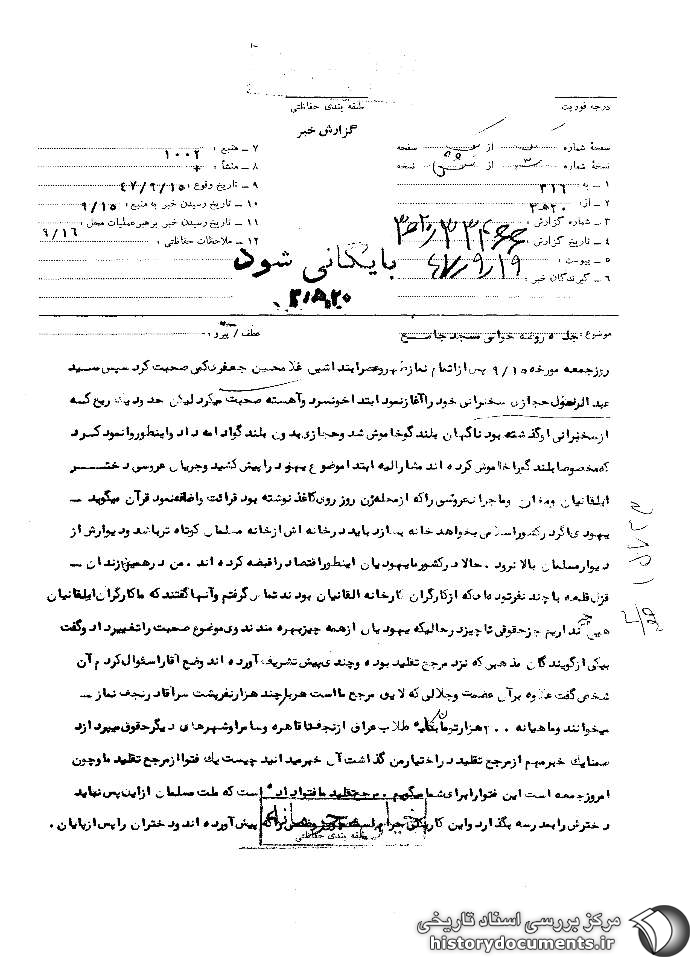 درجه فوریت
طبقه بندی حفاظتی
گزارش خبر
نسخهٔ شماره از صفحه
نسخهٔ شماره از نسخه
۱ ــ به ۳۱۶
۲ ــ از: ۲۰ ه ۳
۳ ــ شماره گزارش:
۴ ــ تاریخ گزارش: ۴۷/۹/۱۹
۵ ــ پیوست:
۶ ــ گیرندگان خبر:
۷ ــ منبع: ۱۰۰۲
۸ ــ منشأ:
۹ ــ تاریخ وقوع: ۴۷/۹/۱۵
۱۰ ــ تاریخ رسیدن خبر به منبع: ۹/۱۵
۱۱ ــ تاریخ رسیدن خبر برهبر عملیات محل: ۹/۱۶
۱۲ ــ ملاحظات حفاظتی:
بایگانی شود
موضوع: جلسه روضه خوانی مسجد جامع
عطف / پیرو:
روز جمعه مورخه ۹/۱۵ پس از اتمام نماز ظهر و عصر ابتدا شیخ غلامحسین جعفری کمی صحبت کرد سپس سید
عبدالرسول حجازی سخنرانی خود را آغاز نمود ابتدا خونسرد و آهسته صحبت میکرد لیکن حدود یک ربع که
از سخنرانی او گذشته بود ناگهان بلندگو خاموش شد و حجازی بدون بلندگو ادامه داد و اینطور وانمود کرد
که مخصوصا بلندگو را خاموش کرده اند مشارالیه ابتدا موضوع یهود را پیش کشید و جریان عروسی دختر
ایلقانیان و مخارج و ماجرای عروسی را که از مجله زن روز روی کاغذ نوشته بود قرائت و اضافه نمود قرآن میگوید ــ
یهودی اگر در کشور اسلامی بخواهد خانه بسازد باید در خانه اش از خانه مسلمان کوتاه تر باشد و دیوارش از
دیوار مسلمان بالا نرود . حالا در کشور ما یهودیان اینطور اقتصاد را قبضه کرده اند . من در همین زندان ــ
قزل قلعه با چند نفر توده ای که از کارگران کارخانه القانیان بودند تماس گرفتم و آنها گفتند که ما کارگران ایلقانیان
هیچ نداریم جز حقوق ناچیز در حالیکه یهودیان از همه چیز بهره مندند وی موضوع صحبت را تغییر داد و گفت
یکی از گویندگان مذهبی که نزد مرجع تقلید بوده و چندی پیش تشریف آورده اند وضع آقا را سئوال کردم آن
شخص گفت علاوه بر آن عظمت و جلالی که لایق مرجع ما است هر بار چند هزار نفر پشت سر آقا در نجف نماز ــ
میخوانند و ماهیانه ۲۰۰ هزار تومان بکلیه طلاب عراق از نجف تا قاهره و سامرا و شهرهای دیگر حقوق میپردازد
ضمنا یک خبر مهم از مرجع تقلید در اختیار من گذاشت آن خبر میدانید چیست یک فتوا از مرجع تقلید ما و چون
امروز جمعه است این فتوا را برای شما میگویم . مرجع تقلید ما فتوا داده است که ملت مسلمان از این پس نباید
دخترش را بمدرسه بگذارد و این کار پیش آورده اند و دختران را پس از پایان .
طبقه بندی حفاظتی
خیلی محرمانه
مرکز بررسی اسناد تاریخی
historydocuments.ir